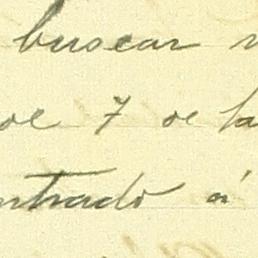 buscar
de 7 de la
ntrado á